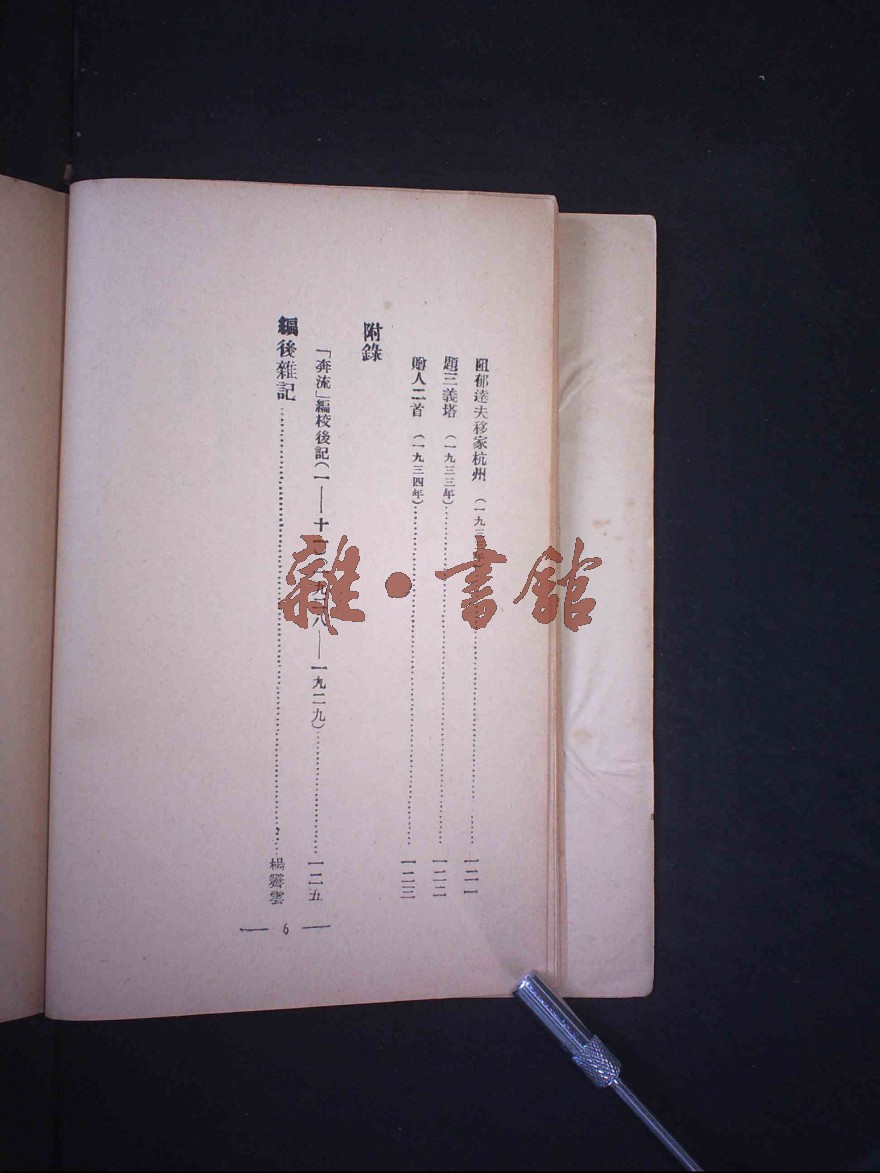 阻郁達夫移家杭州（一九三
一二一
題三義塔（一九三三年）
一二二
贈人二首（一九三四年）
一二三
附錄
「奔流」編校後記（一——十
八——一九二九）
一二五
編後雜記
楊霽雲
— 6 —
雜·書館